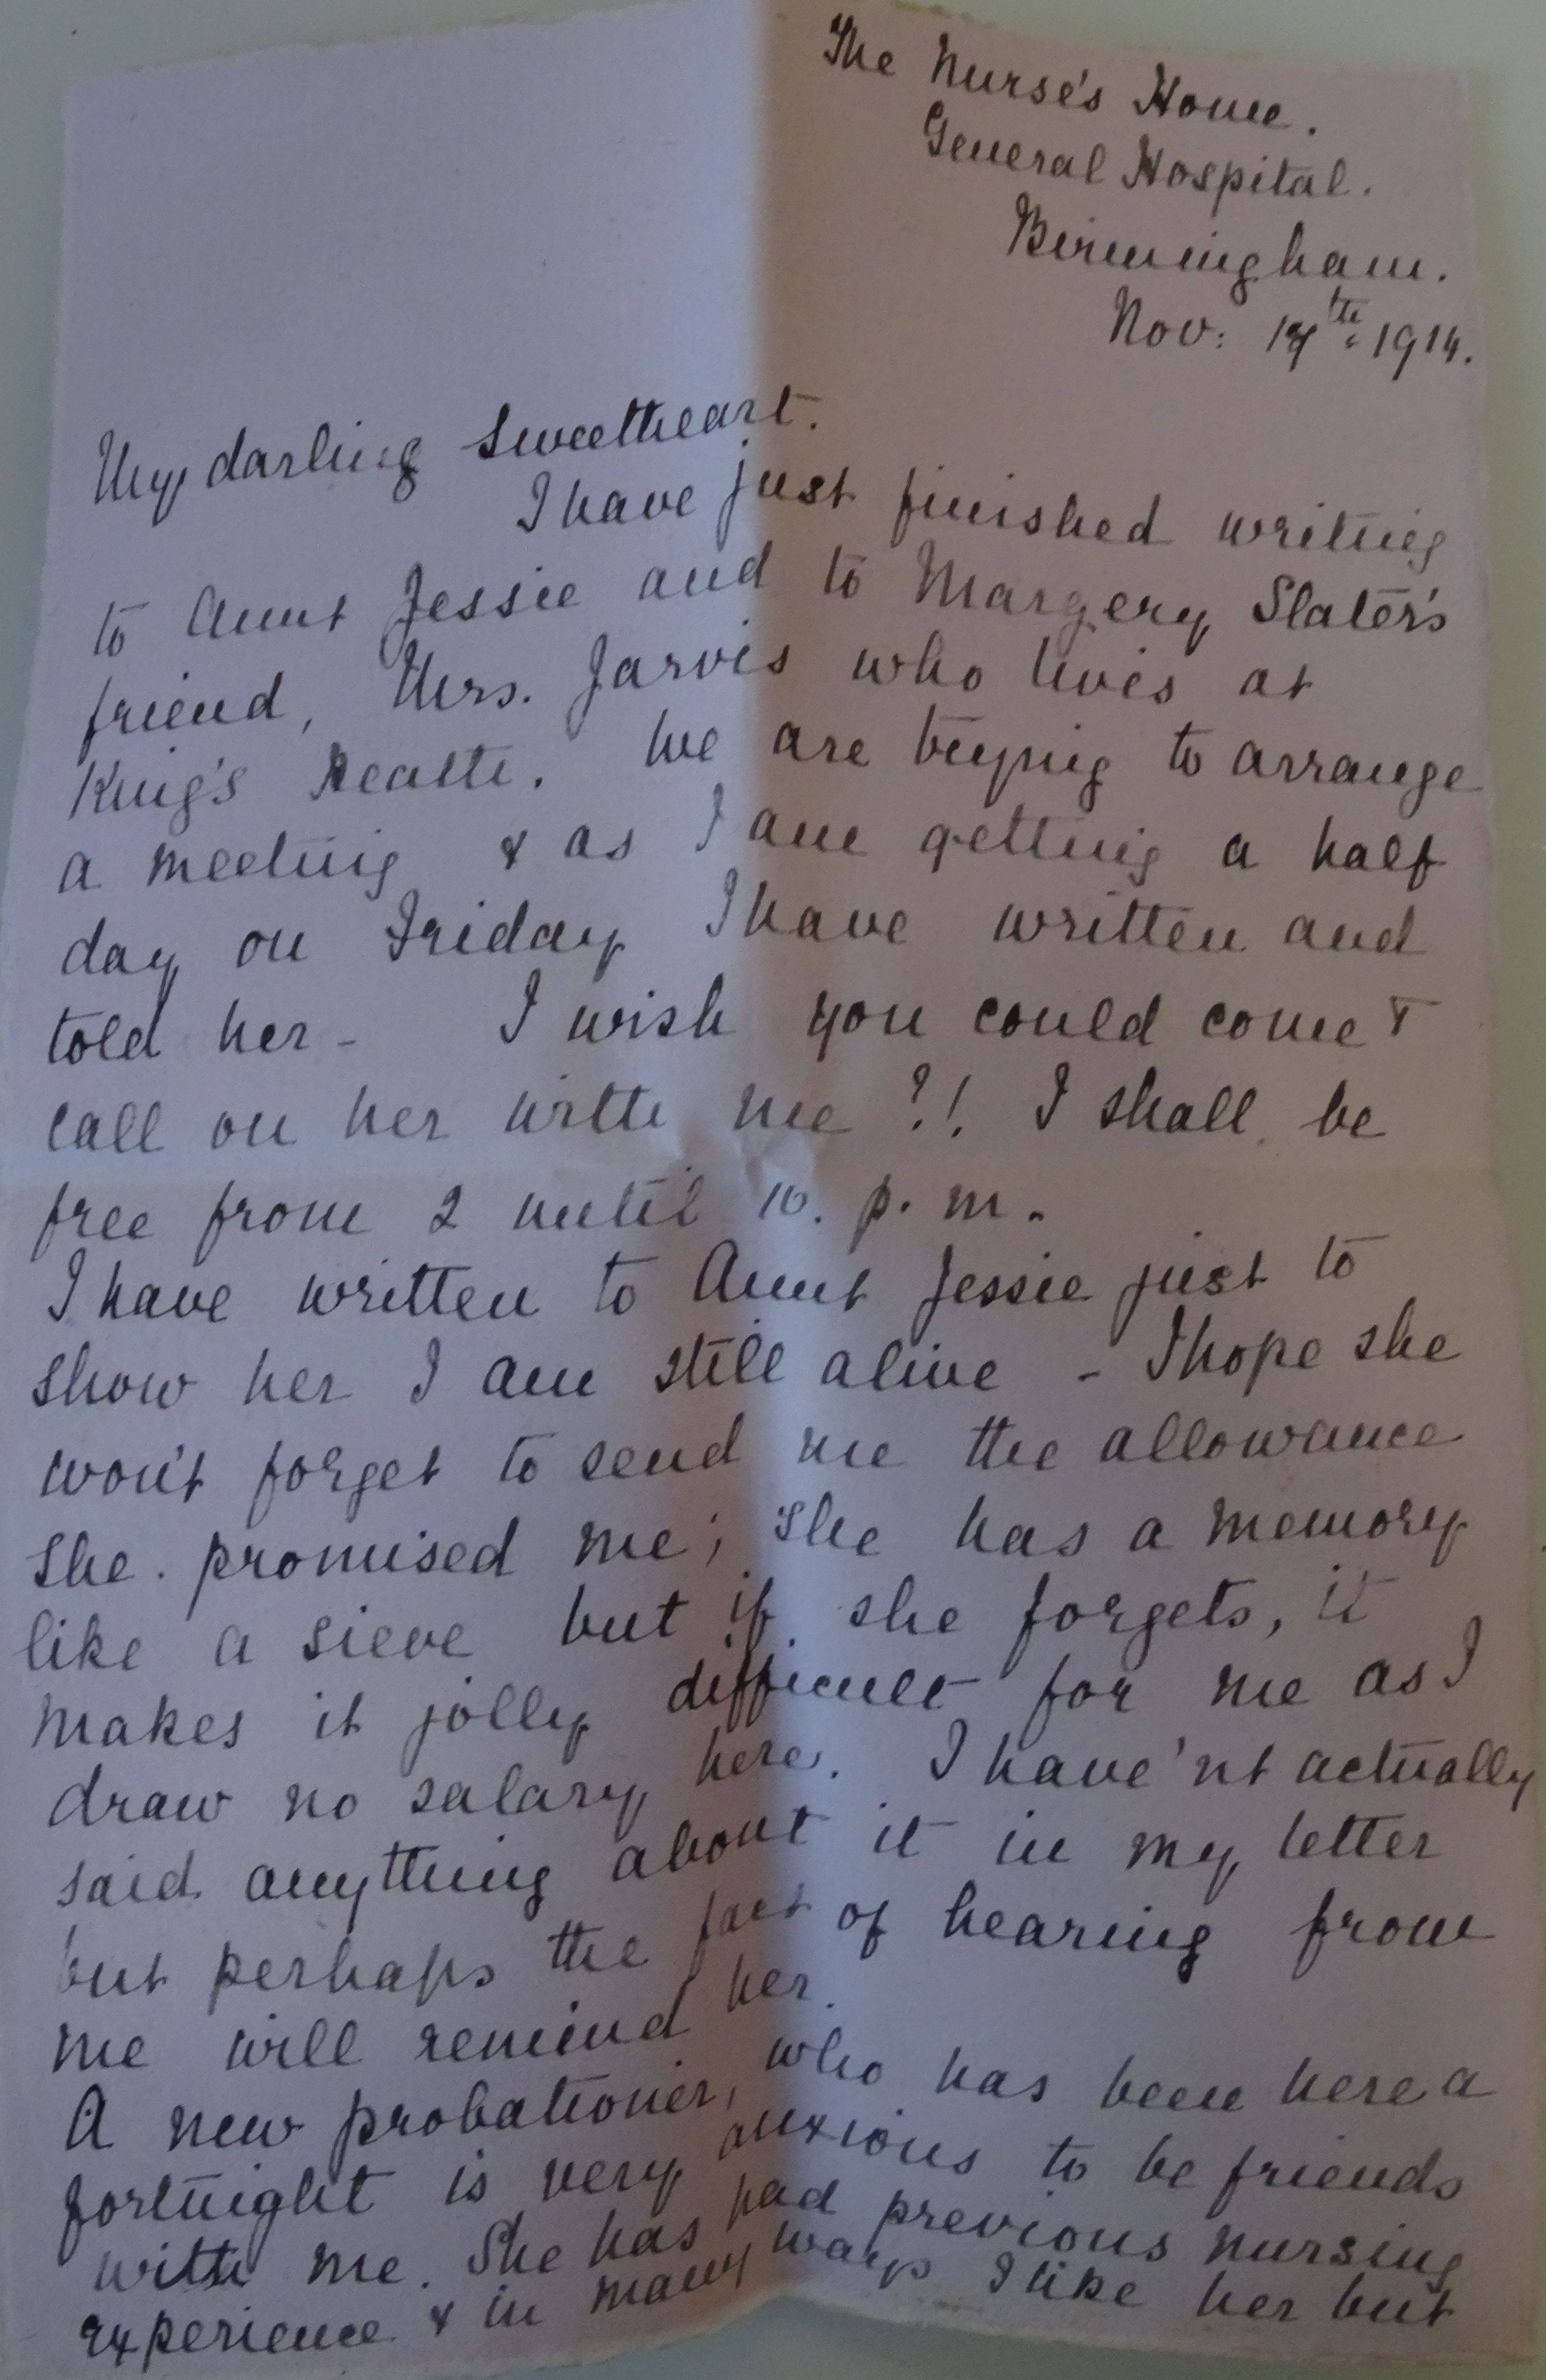 The Nurse's Home.
General Hospital.
Birmingham.
Nov: 17th 1914.
My darling Sweetheart.
I have just finished writing
to Aunt Jessie and to Margery Slater's
friend, Mrs. Jarvis who lives at
King's Heath. We are trying to arrange
a meeting & as I am getting a half
day on Friday I have written and
told her - I wish you could come &
call on her with me ?! I shall be
free from 2 until 10. p. m.
I have written to Aunt Jessie just to
show her I am still alive - I hope she
won't forget to send me the allowance
she promised me; she has a memory
like a sieve but if she forgets, it
makes it jolly difficult for me as I
draw no salary here. I have'nt actually
said anything about it in my letter
but perhaps the fact of hearing from
me will remind her.
A new probationer, who has been here a
fortnight is very anxious to be friends
with me. She has had previous nursing
experience & in many ways I like her but